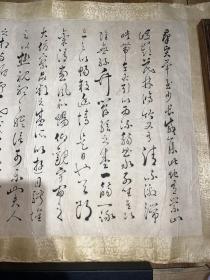 羣賢畢至少長咸集此地有崇山
峻領茂林脩竹又有清流激湍
暎帶左右引以為流觴曲水列坐其次
雖無絲竹管弦之盛一觴一詠
亦足以暢敘幽情是日也天朗
氣清惠風和暢仰觀宇宙之
大俯察品類之盛所以遊目騁懷
足以極視聽之娛信可樂也夫人
之相與俯仰